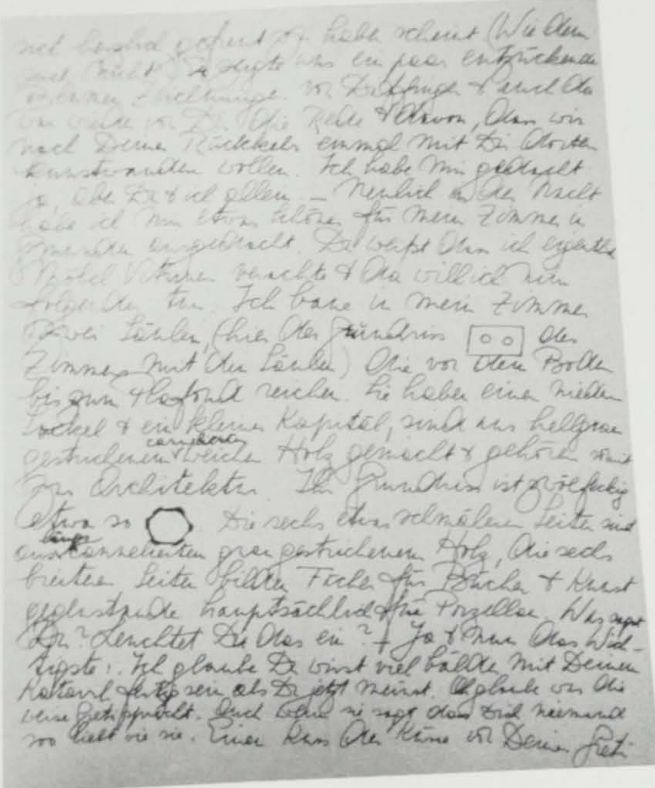 sich gefreut zu haben scheint (Wie denn
auch nicht?) zeigte uns ein paar entzückende
von & auch da
war wieder von Dir die Rede & davon, dass wir
nach Deiner Rückkehr einmal mit Dir dorthin
wollen. Ich habe mir gedacht
ja, aber Du & ich allein – Neulich in der Nacht
habe ich mir etwas schönes für mein Zimmer in
Gmunden ausgedacht. Du weisst dass ich eigentlich
Möbel Vitrinen verachte & da will ich nun
folgendes tun. Ich baue in mein Zimmer
zwei Säulen, (hier der Grundriss des
Zimmers mit den Säulen) die vor dem Boden
bis zum Plafond reichen. Sie haben einen niedern
Sockel & ein kleines Kapitäl, sind aus hellgrau
gestrichenem weichen Holz gemacht & gehören somit
zur Architektur. Ihr Grundriss ist zwölfeckig
etwa so Die sechs etwas schmäleren Seiten sind
aus grau gestrichenem Holz, die sechs
breiteren Seiten bilden Fächer für Bücher & Kunst
gegenstände hauptsächlich für Porzellan. Was sagst
Du? Leuchtet Dir das ein? Ja & nun das Wich-
tigste: Ich glaube Du wirst viel bälder mit Deinem
Material fertig sein als Du jetzt meinst.
Auch sie sagt dass Dich niemand
so liebt wie sie. Einen Kuss von Deiner